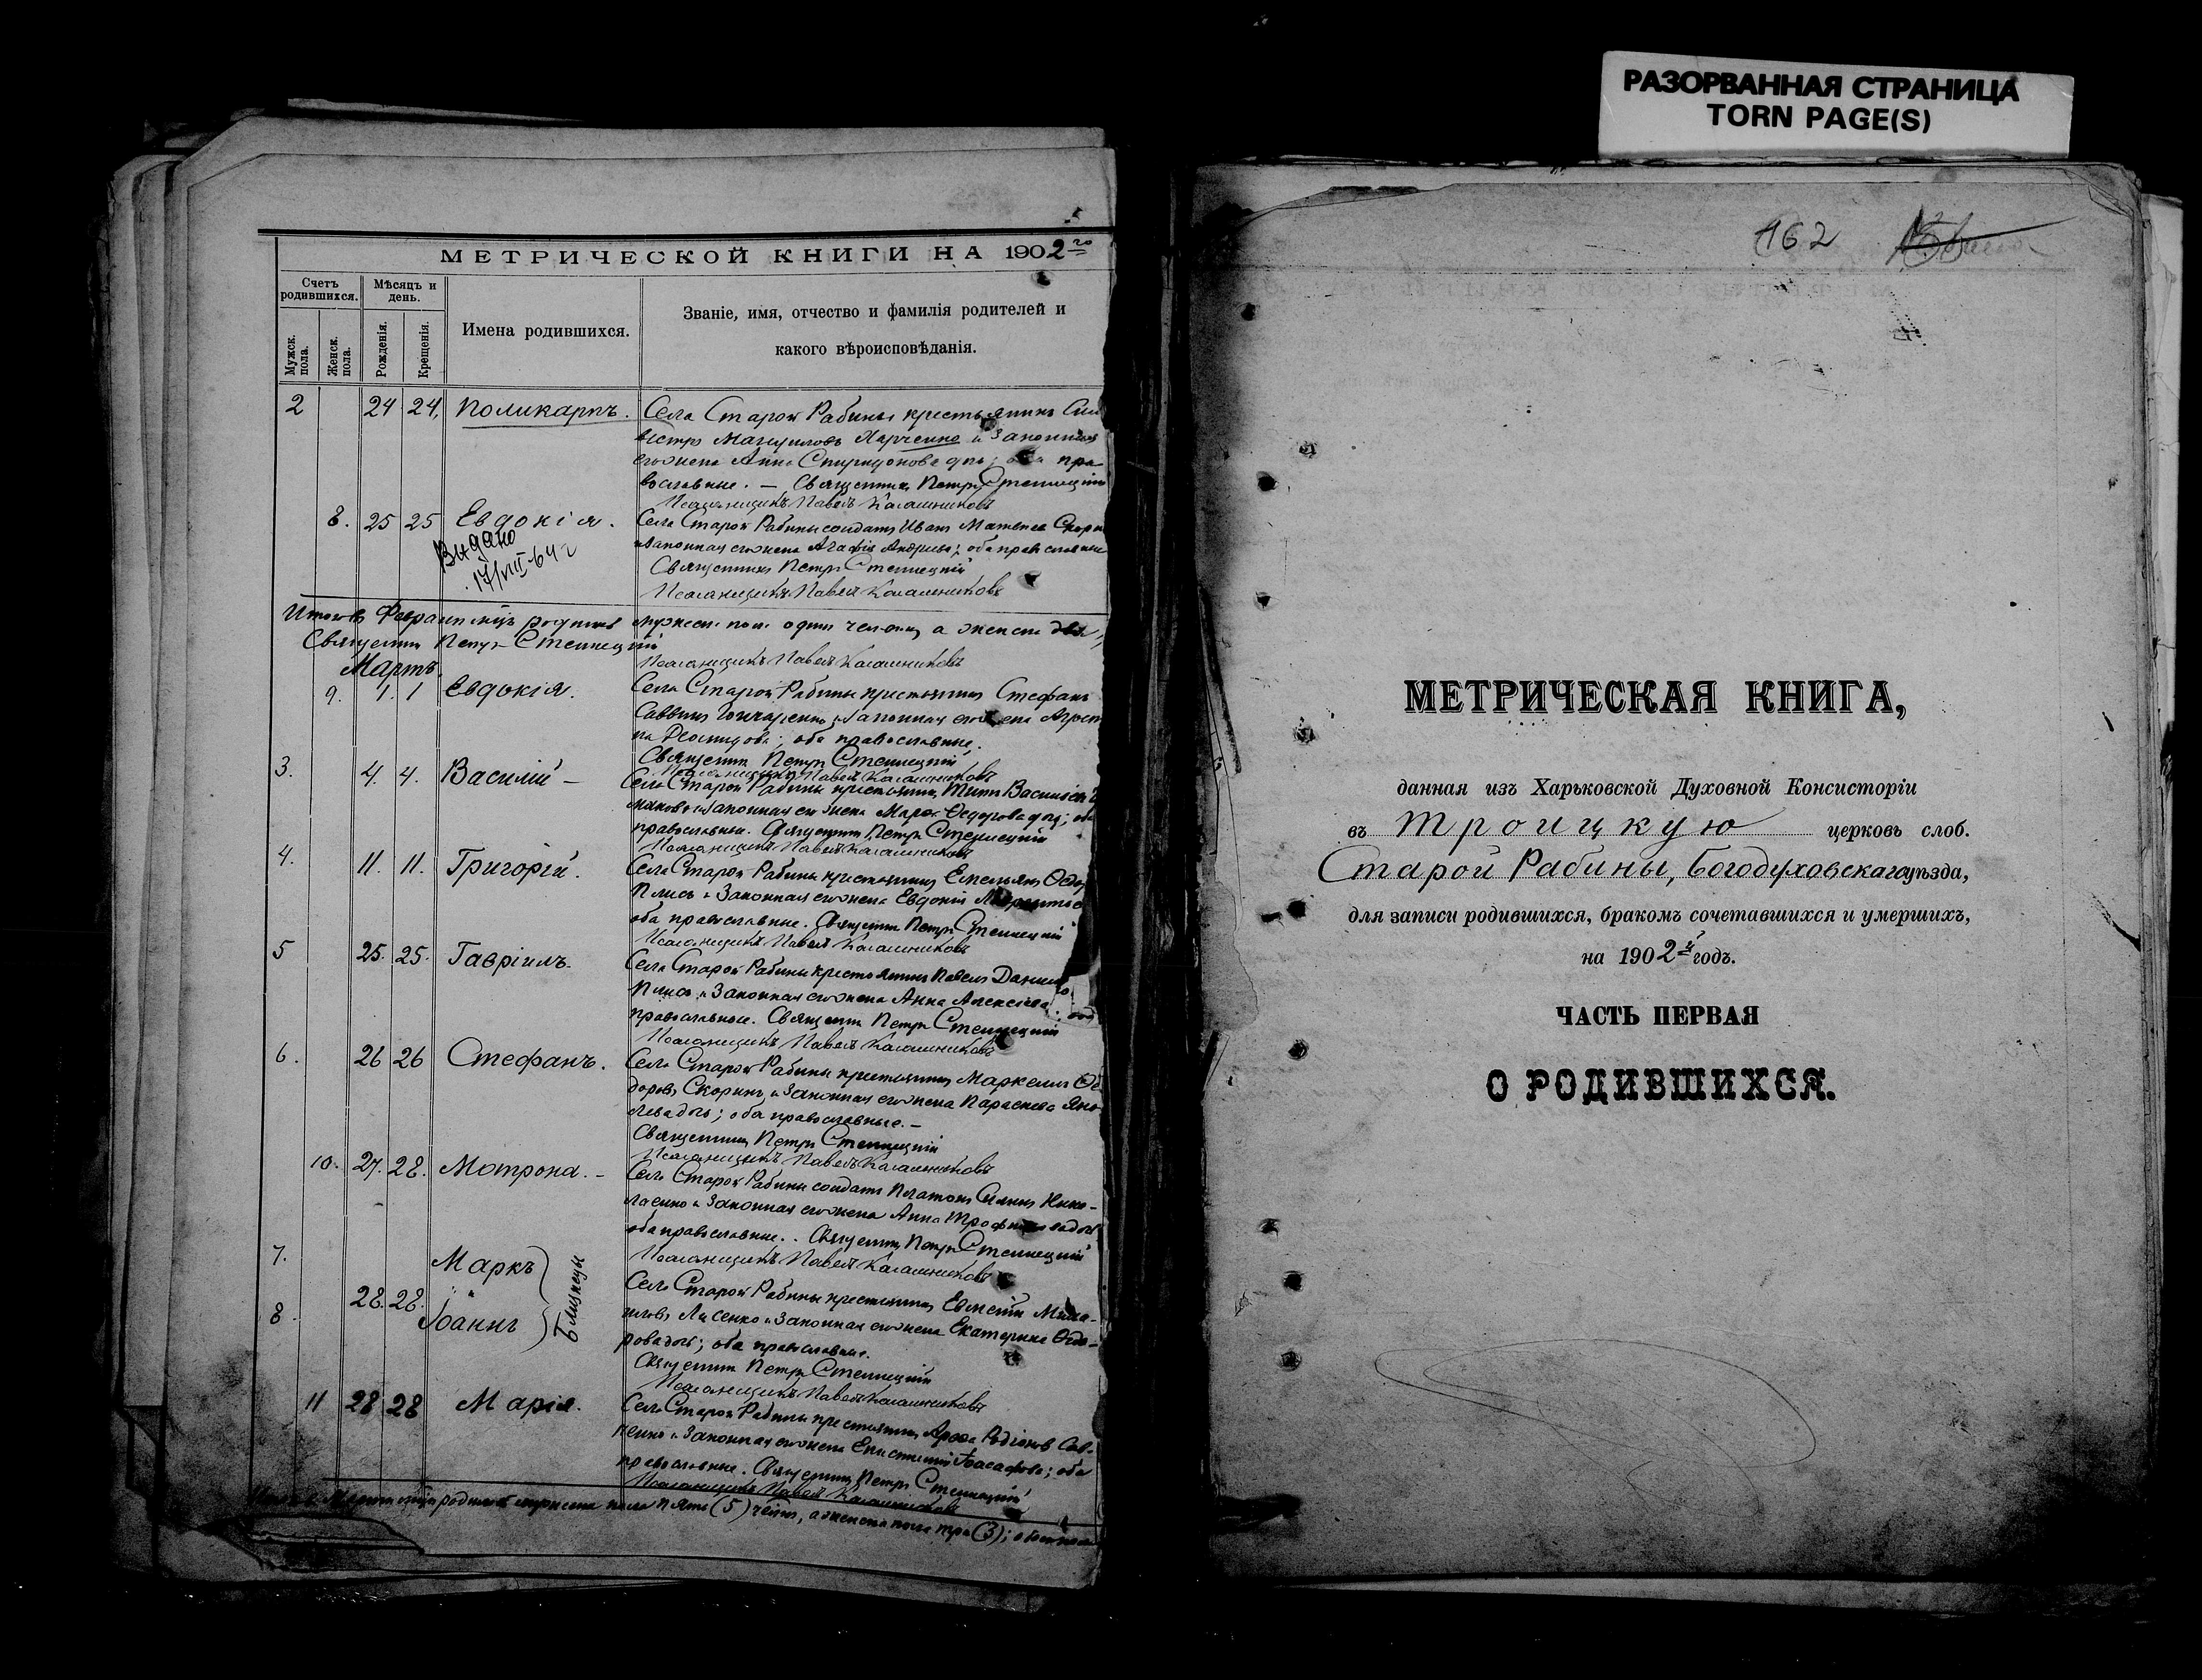 МЕТРИЧЕСКОЙ КНИГИ НА 1902го
Счетъ родившихся.
Мѣсяцъ и день.
Мужск. пола.
Женск. пола.
Рожденія.
Крещенія.
Имена родившихся.
Званіе, имя, отчество и фамилія родителей и
какого вѣроисповѣданія.
2 24 24. Поликарпъ. Села Старой Рабины крестьянинъ Сил
вестръ Харченко и законная
его жена Анна Спиридонова дочь; оба пра
вославные. — Священникъ Петръ
Псаломщикъ Павелъ Калашниковъ
8. 25 25 Евдокія. Села Старой Рабины солдатъ Иванъ Матвѣевъ
и законная его жена Агафія Андреева; оба православные
Выдано
17/VIII-64 г
Священникъ Петръ
Псаломщикъ Павелъ Калашниковъ
Итого въ Февралѣ мцѣ родилось мужеска пола одинъ человѣкъ а женска два,
Священникъ Петръ
Псаломщикъ Павелъ Калашниковъ
Мартъ.
9. 1. 1 Евдокія. Села Старой Рабины крестьянинъ Стефанъ
Саввинъ Гончаренко и законная его жена
оба православные.
Священникъ Петръ
Псаломщикъ Павелъ Калашниковъ
3. 4. 4. Василій — Села Старой Рабины крестьянинъ
и законная его жена Марѳа Ѳедорова дочь; оба
православные. Священникъ Петръ
Псаломщикъ Павелъ Калашниковъ
4. 11. 11. Григорій. Села Старой Рабины крестьянинъ Емельянъ
Плисъ и законная его жена Евдокія
оба православные. Священникъ Петръ
Псаломщикъ Павелъ Калашниковъ
5 25. 25. Гавріилъ. Села Старой Рабины крестьянинъ Павелъ Данило
Плисъ и законная его жена Анна Алексѣева;
православные. Священникъ Петръ
Псаломщикъ Павелъ Калашниковъ
6. 26 26 Стефанъ. Села Старой Рабины крестьянинъ Маркеллъ Ѳе
доровъ Скоринъ и законная его жена Параскева Яко
влева дочь; оба православные. —
Священникъ Петръ
Псаломщикъ Павелъ Калашниковъ
10. 27. 28. Мотрона. — Села Старой Рабины солдатъ Платонъ
и законная его жена Анна
оба православные. Священникъ Петръ
Псаломщикъ Павелъ Калашниковъ
7. Маркъ
28. 28.
8. Іоаннъ
близнецы
Села Старой Рабины крестьянинъ Евмсѣй Миха-
иловъ Лисенко и законная его жена Екатерина Ѳедо-
рова дочь; оба православные.
Священникъ Петръ
Псаломщикъ Павелъ Калашниковъ
11 28 28 Марія. Села Старой Рабины крестьянинъ Родіоновъ Сав-
ченко и законная его жена Іоасафова; оба
православные. Священникъ Петръ
Псаломщикъ Павелъ Калашниковъ
Итого въ Мартѣ мцѣ родилось мужеска пола пять (5) а женска пола три (3);
РАЗОРВАННАЯ СТРАНИЦА
TORN PAGE(S)
162
МЕТРИЧЕСКАЯ КНИГА,
данная изъ Харьковской Духовной Консисторіи
въ Троицкую церковь слоб.
Старой Рабины, Богодуховскаго уѣзда,
для записи родившихся, бракомъ сочетавшихся и умершихъ,
на 1902й годъ.
ЧАСТЬ ПЕРВАЯ
О РОДИВШИХСЯ.